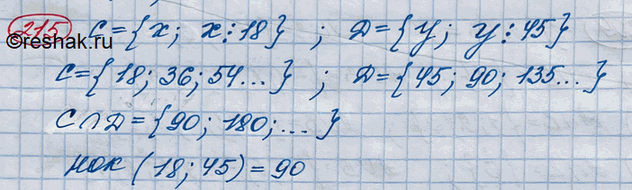 215 C={x; x⋮18} ; D={y; y⋮45}
©reshak.ru
C={18; 36; 54...} ; D={45; 90; 135...}
C∩D={90; 180; ...}
НОК (18; 45) = 90